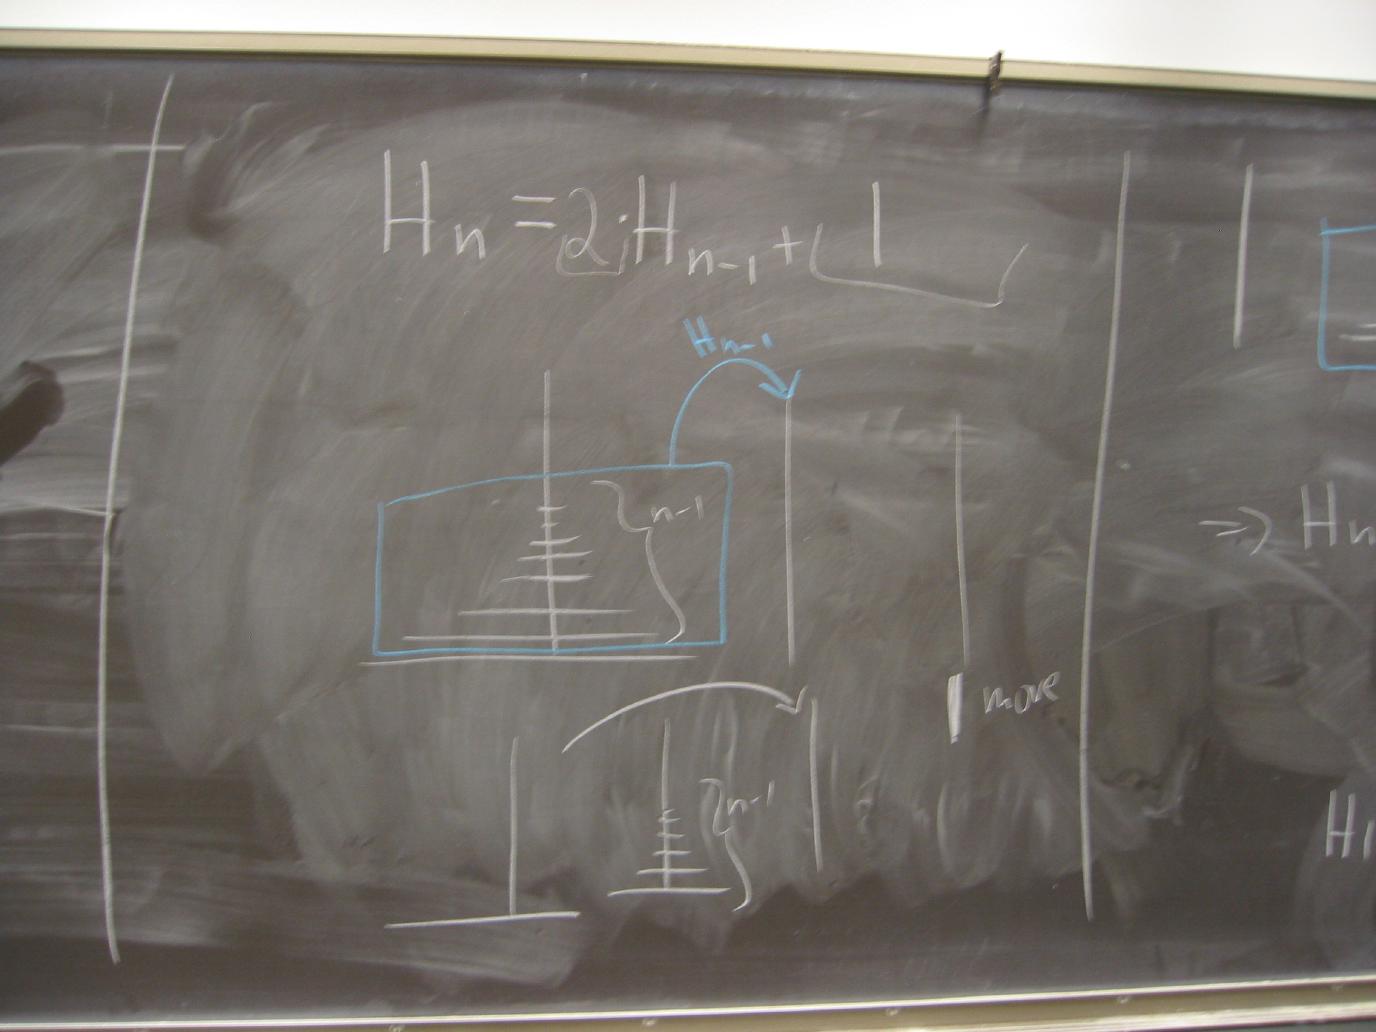 Hn = 2·Hn-1 + 1
Hn-1
n-1
1 move
n-1
=> Hn
H1